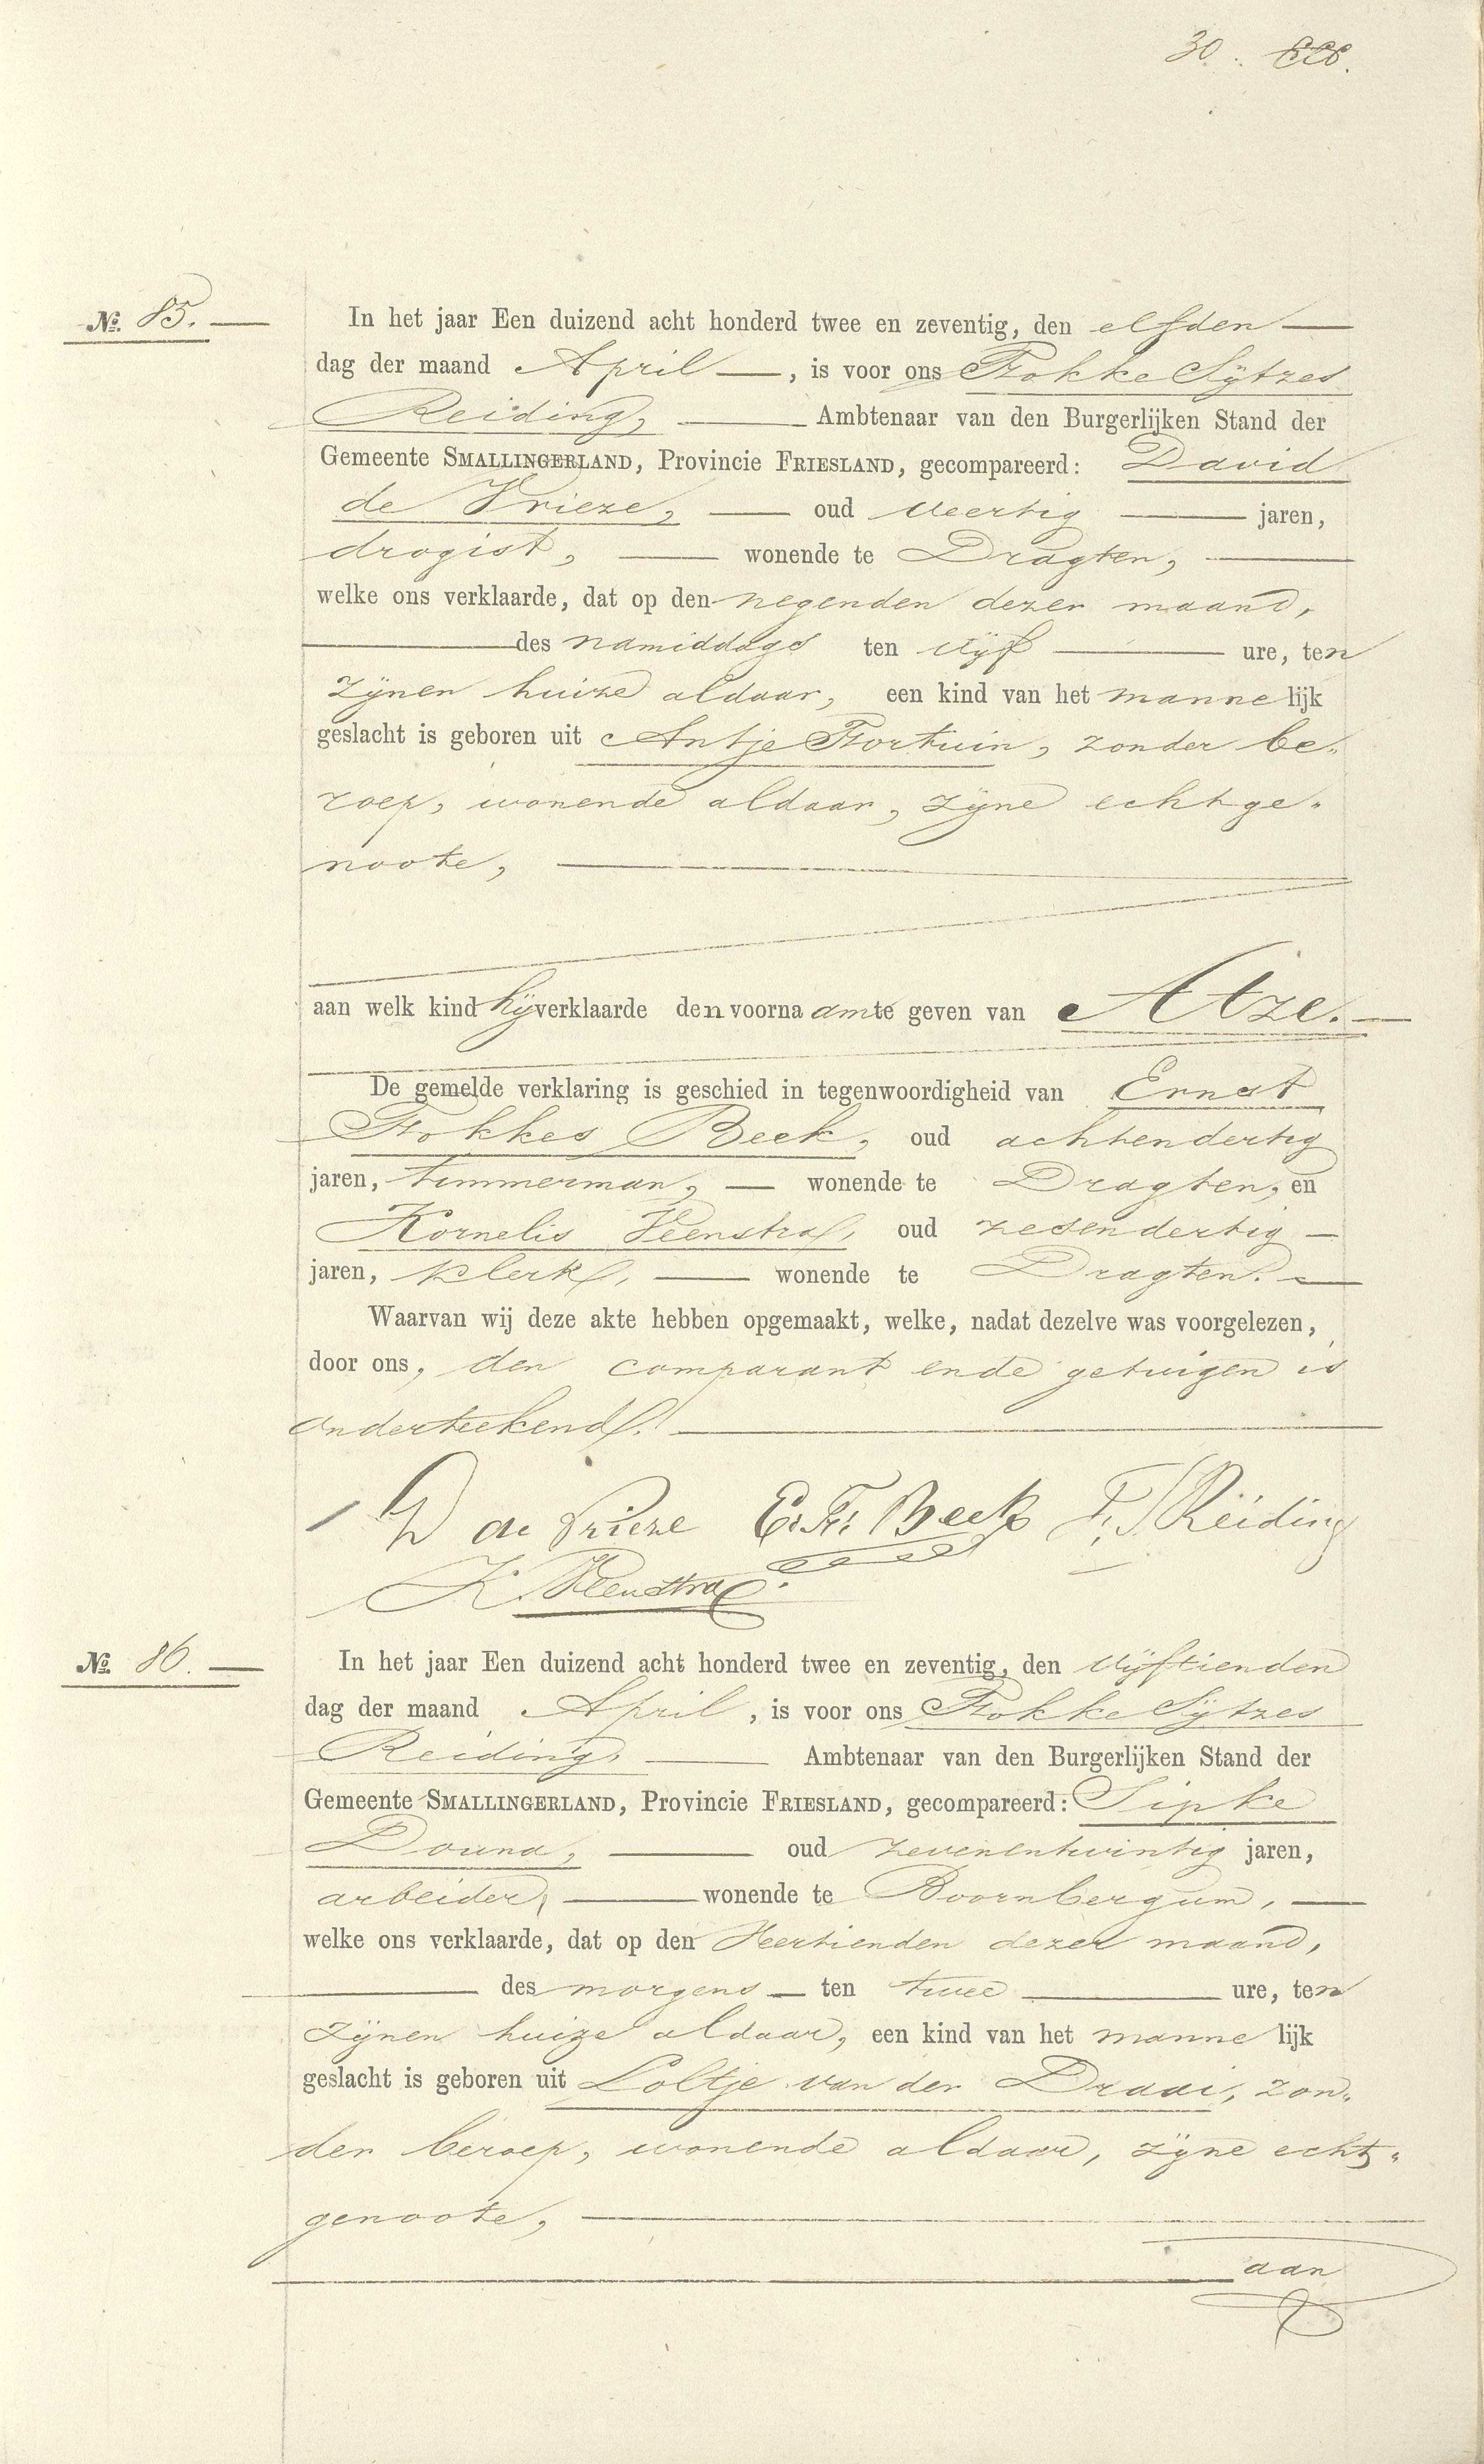 30.
No. 85.
In het jaar Een duizend acht honderd twee en zeventig, den elfden
dag der maand April, is voor ons Fokke Sÿtzes
Reiding, Ambtenaar van den Burgerlijken Stand der
Gemeente SMALLINGERLAND, Provincie FRIESLAND, gecompareerd: David
de Vrieze, oud veertig jaren,
drogist, wonende te Dragten,
welke ons verklaarde, dat op den negenden dezer maand,
des namiddags ten vÿf ure, ten
zÿnen huize aldaar, een kind van het mannelijk
geslacht is geboren uit Antje Fortuin, zonder be„
roep, wonende aldaar, zÿne echtge„
noote,
aan welk kind hÿ verklaarde den voornaam te geven van Atze.
De gemelde verklaring is geschied in tegenwoordigheid van Ernst
Fokkes Beek, oud achtendertig
jaren, timmerman, wonende te Dragten, en
Kornelis Veenstra, oud zesendertig
jaren, klerk, wonende te Dragten.
Waarvan wij deze akte hebben opgemaakt, welke, nadat dezelve was voorgelezen,
door ons, den comparant en de getuigen is
onderteekend.
D de Vrieze E. F. Beek F. S. Reiding
K. Veenstra.
No. 86.
In het jaar Een duizend acht honderd twee en zeventig, den vÿftienden
dag der maand April, is voor ons Fokke Sÿtzes
Reiding, Ambtenaar van den Burgerlijken Stand der
Gemeente SMALLINGERLAND, Provincie FRIESLAND, gecompareerd: Sipke
Douna, oud zevenentwintig jaren,
arbeider, wonende te Boornbergum,
welke ons verklaarde, dat op den veertienden dezer maand,
des morgens ten twee ure, ten
zÿnen huize aldaar, een kind van het mannelijk
geslacht is geboren uit Loltje van der Draai, zon„
der beroep, wonende aldaar, zÿne echt„
genoote,
aan